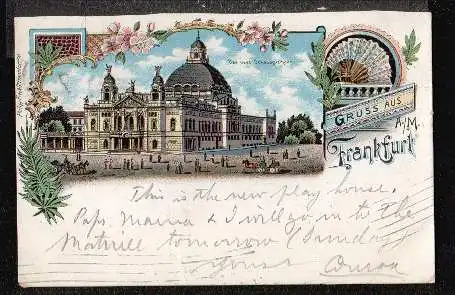 Das neue Schauspielhaus
GRUSS AUS
Frankfurt A/M.
This is the new play house.
Papa Mama & I will go in to the
tomorrow (Sunday)
Yours